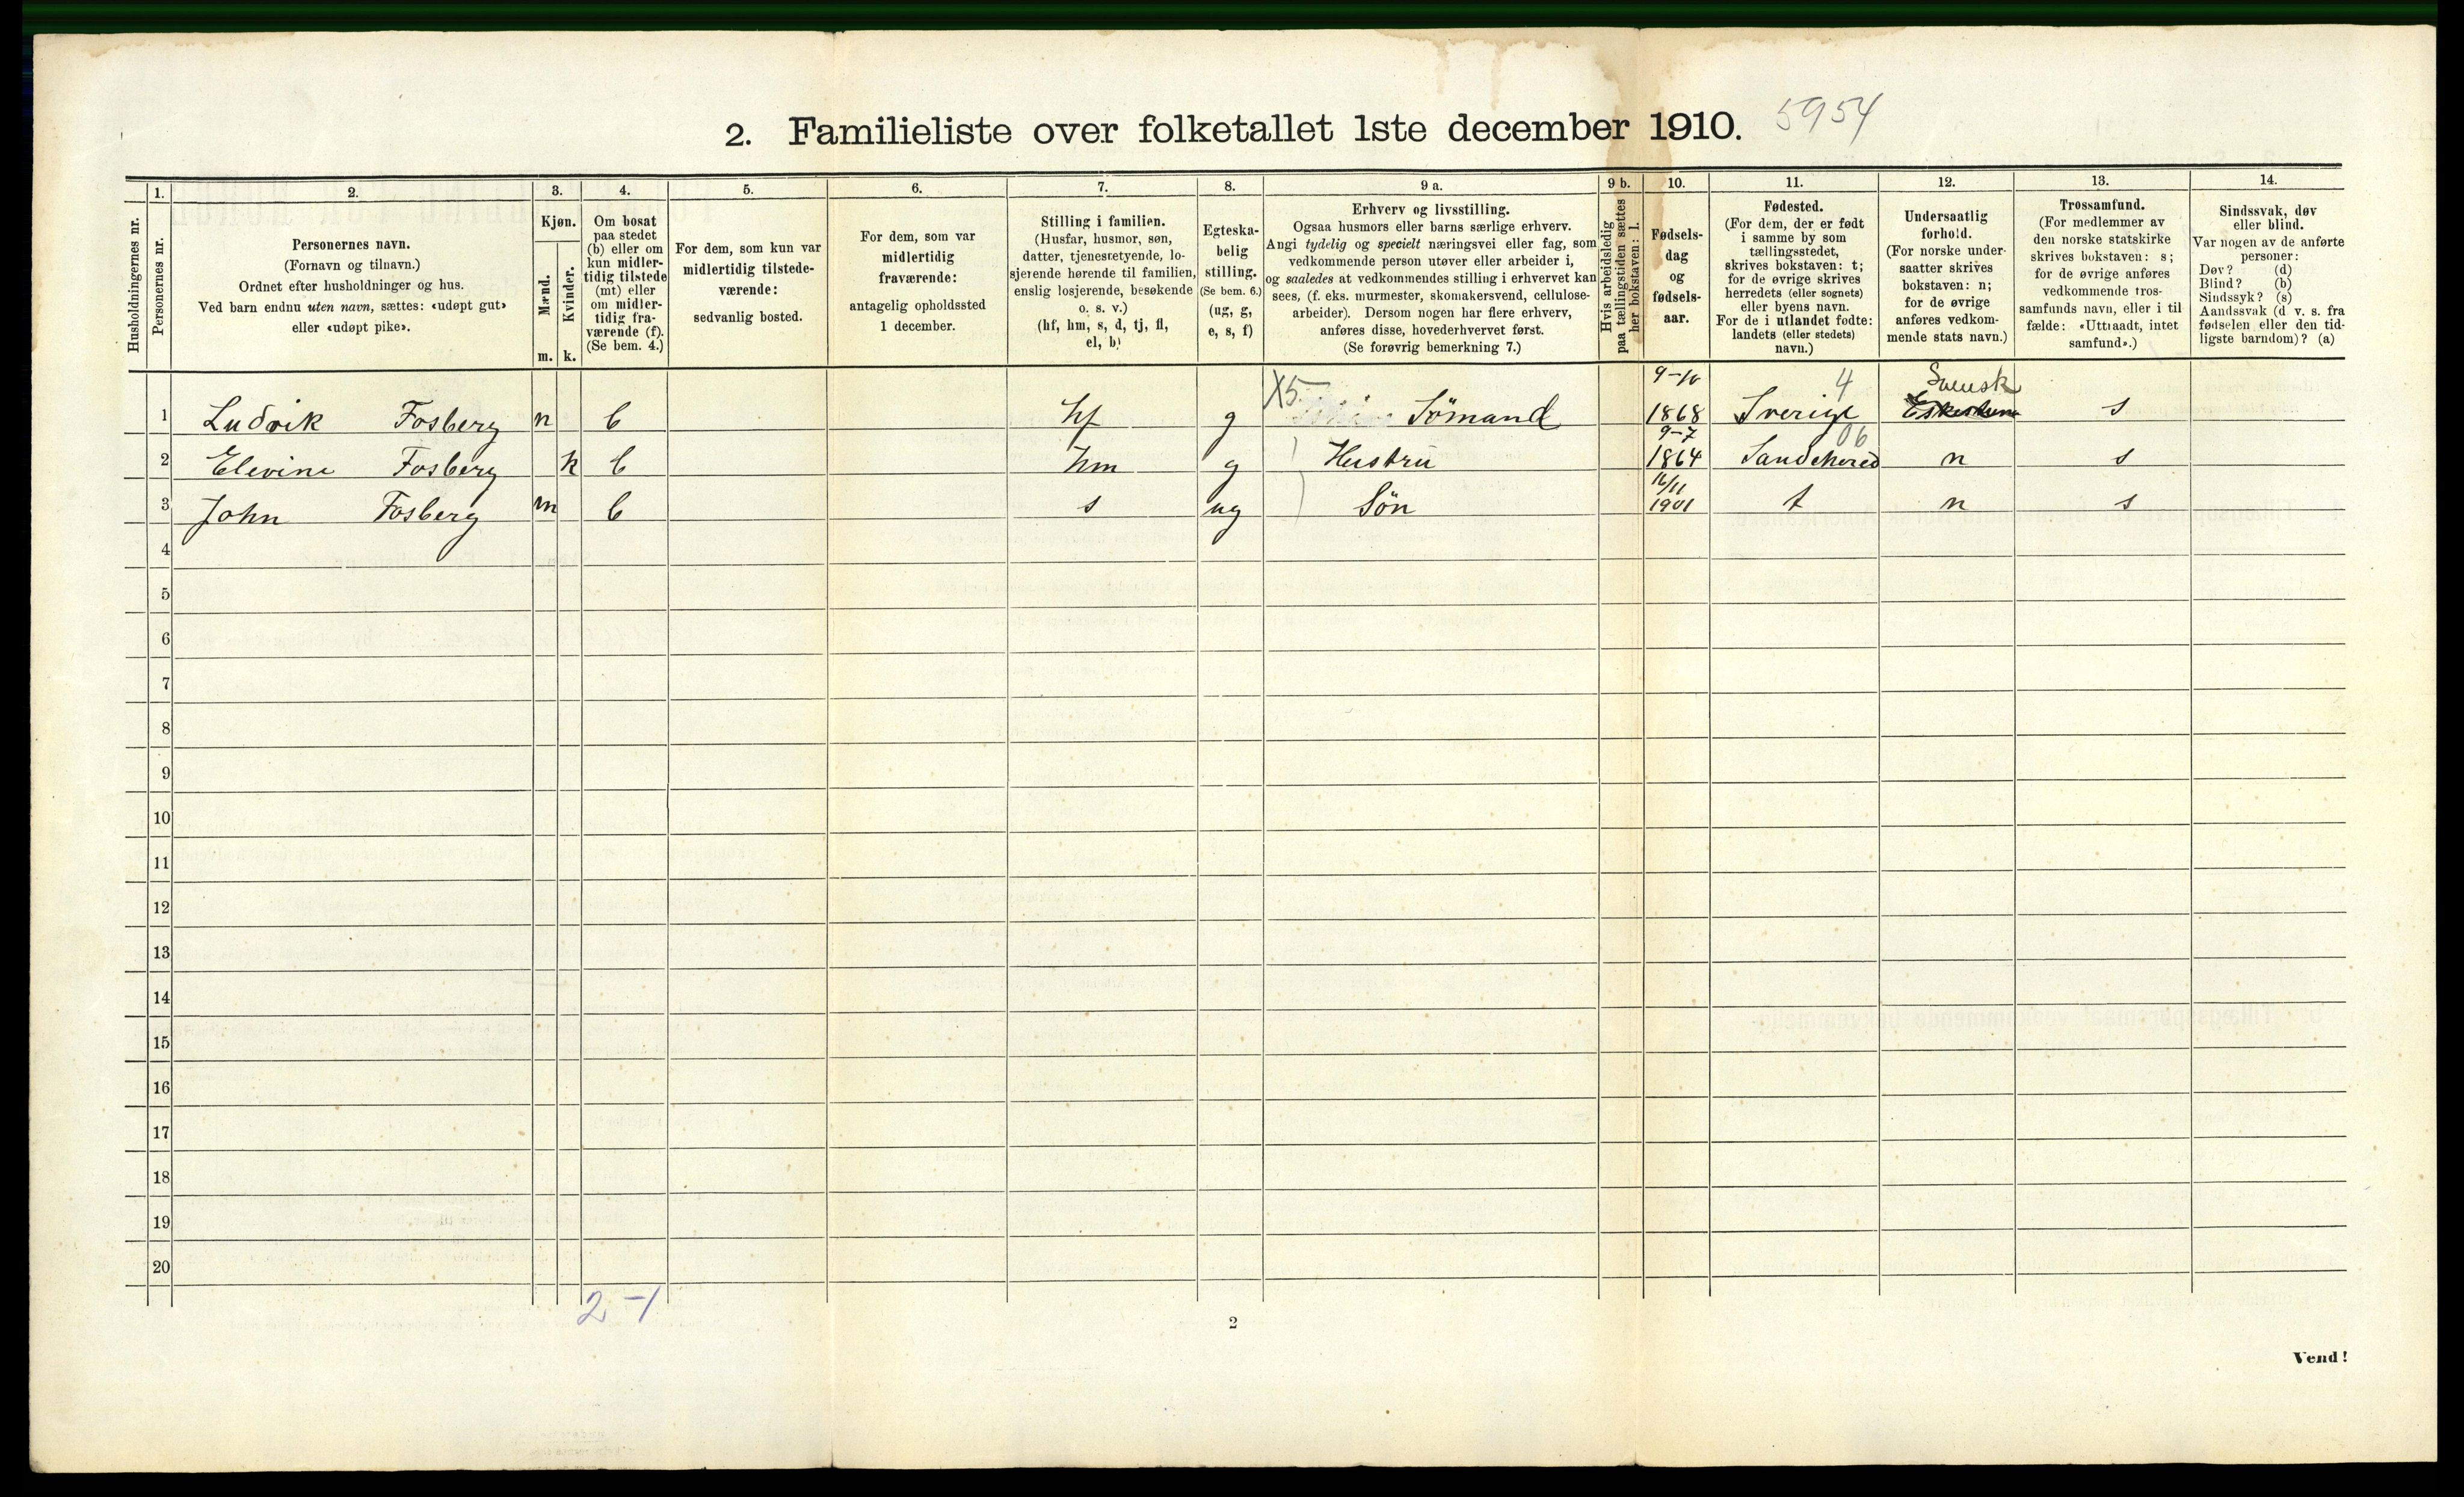 2. Familieliste over folketallet 1ste december 1910. 5954
Husholdningernes nr.
1.
Personernes nr.
2.
Personernes navn.
(Fornavn og tilnavn.)
Ordnet efter husholdninger og hus.
Ved barn endnu uten navn, sættes: «udøpt gut»
eller «udøpt pike».
3.
Kjøn.
Mænd.
m.
Kvinder.
k.
4.
Om bosat
paa stedet
(b) eller om
kun midler-
tidig tilstede
(mt) eller
om midler-
tidig fra-
værende (f).
(Se bem. 4.)
5.
For dem, som kun var
midlertidig tilstede-
værende:
sedvanlig bosted.
6.
For dem, som var
midlertidig
fraværende:
antagelig opholdssted
1 december.
7.
Stilling i familien.
(Husfar, husmor, søn,
datter, tjenestetyende, lo-
sjerende hørende til familien,
enslig losjerende, besøkende
o. s. v.)
(hf, hm, s, d, tj, fl,
el, b)
8.
Egteska-
belig
stilling.
(Se bem. 6.)
(ug, g,
e, s, f)
9 a.
Erhverv og livsstilling.
Ogsaa husmors eller barns særlige erhverv.
Angi tydelig og specielt næringsvei eller fag, som
vedkommende person utøver eller arbeider i,
og saaledes at vedkommendes stilling i erhvervet kan
sees, (f. eks. murmester, skomakersvend, cellulose-
arbeider). Dersom nogen har flere erhverv,
anføres disse, hovederhvervet først.
(Se forøvrig bemerkning 7.)
9 b.
Hvis arbeidsledig
paa tællingstiden sættes
her bokstaven: l.
10.
Fødsels-
dag
og
fødsels-
aar.
11.
Fødested.
(For dem, der er født
i samme by som
tællingsstedet,
skrives bokstaven: t;
for de øvrige skrives
herredets (eller sognets)
eller byens navn.
For de i utlandet fødte:
landets (eller stedets)
navn.)
12.
Undersaatlig
forhold.
(For norske under-
saatter skrives
bokstaven: n;
for de øvrige
anføres vedkom-
mende stats navn.)
13.
Trossamfund.
(For medlemmer av
den norske statskirke
skrives bokstaven: s;
for de øvrige anføres
vedkommende tros-
samfunds navn, eller i til
fælde: «Uttraadt, intet
samfund».)
14.
Sindssvak, døv
eller blind.
Var nogen av de anførte
personer:
Døv? (d)
Blind? (b)
Sindssyk? (s)
Aandssvak (d v. s. fra
fødselen eller den tid-
ligste barndom)? (a)
X5 9-10 4 Svensk
1 Ludvik Fosberg m b hf g Sömand 1868 Sverige s
9-7 06
2 Elevine Fosberg k b hm g Hustru 1864 Sandehered n s
16/11
3 John Fosberg m b s ug Sön 1901 t n s
4
5
6
7
8
9
10
11
12
13
14
15
16
17
18
19
20
2-1
2
Vend!